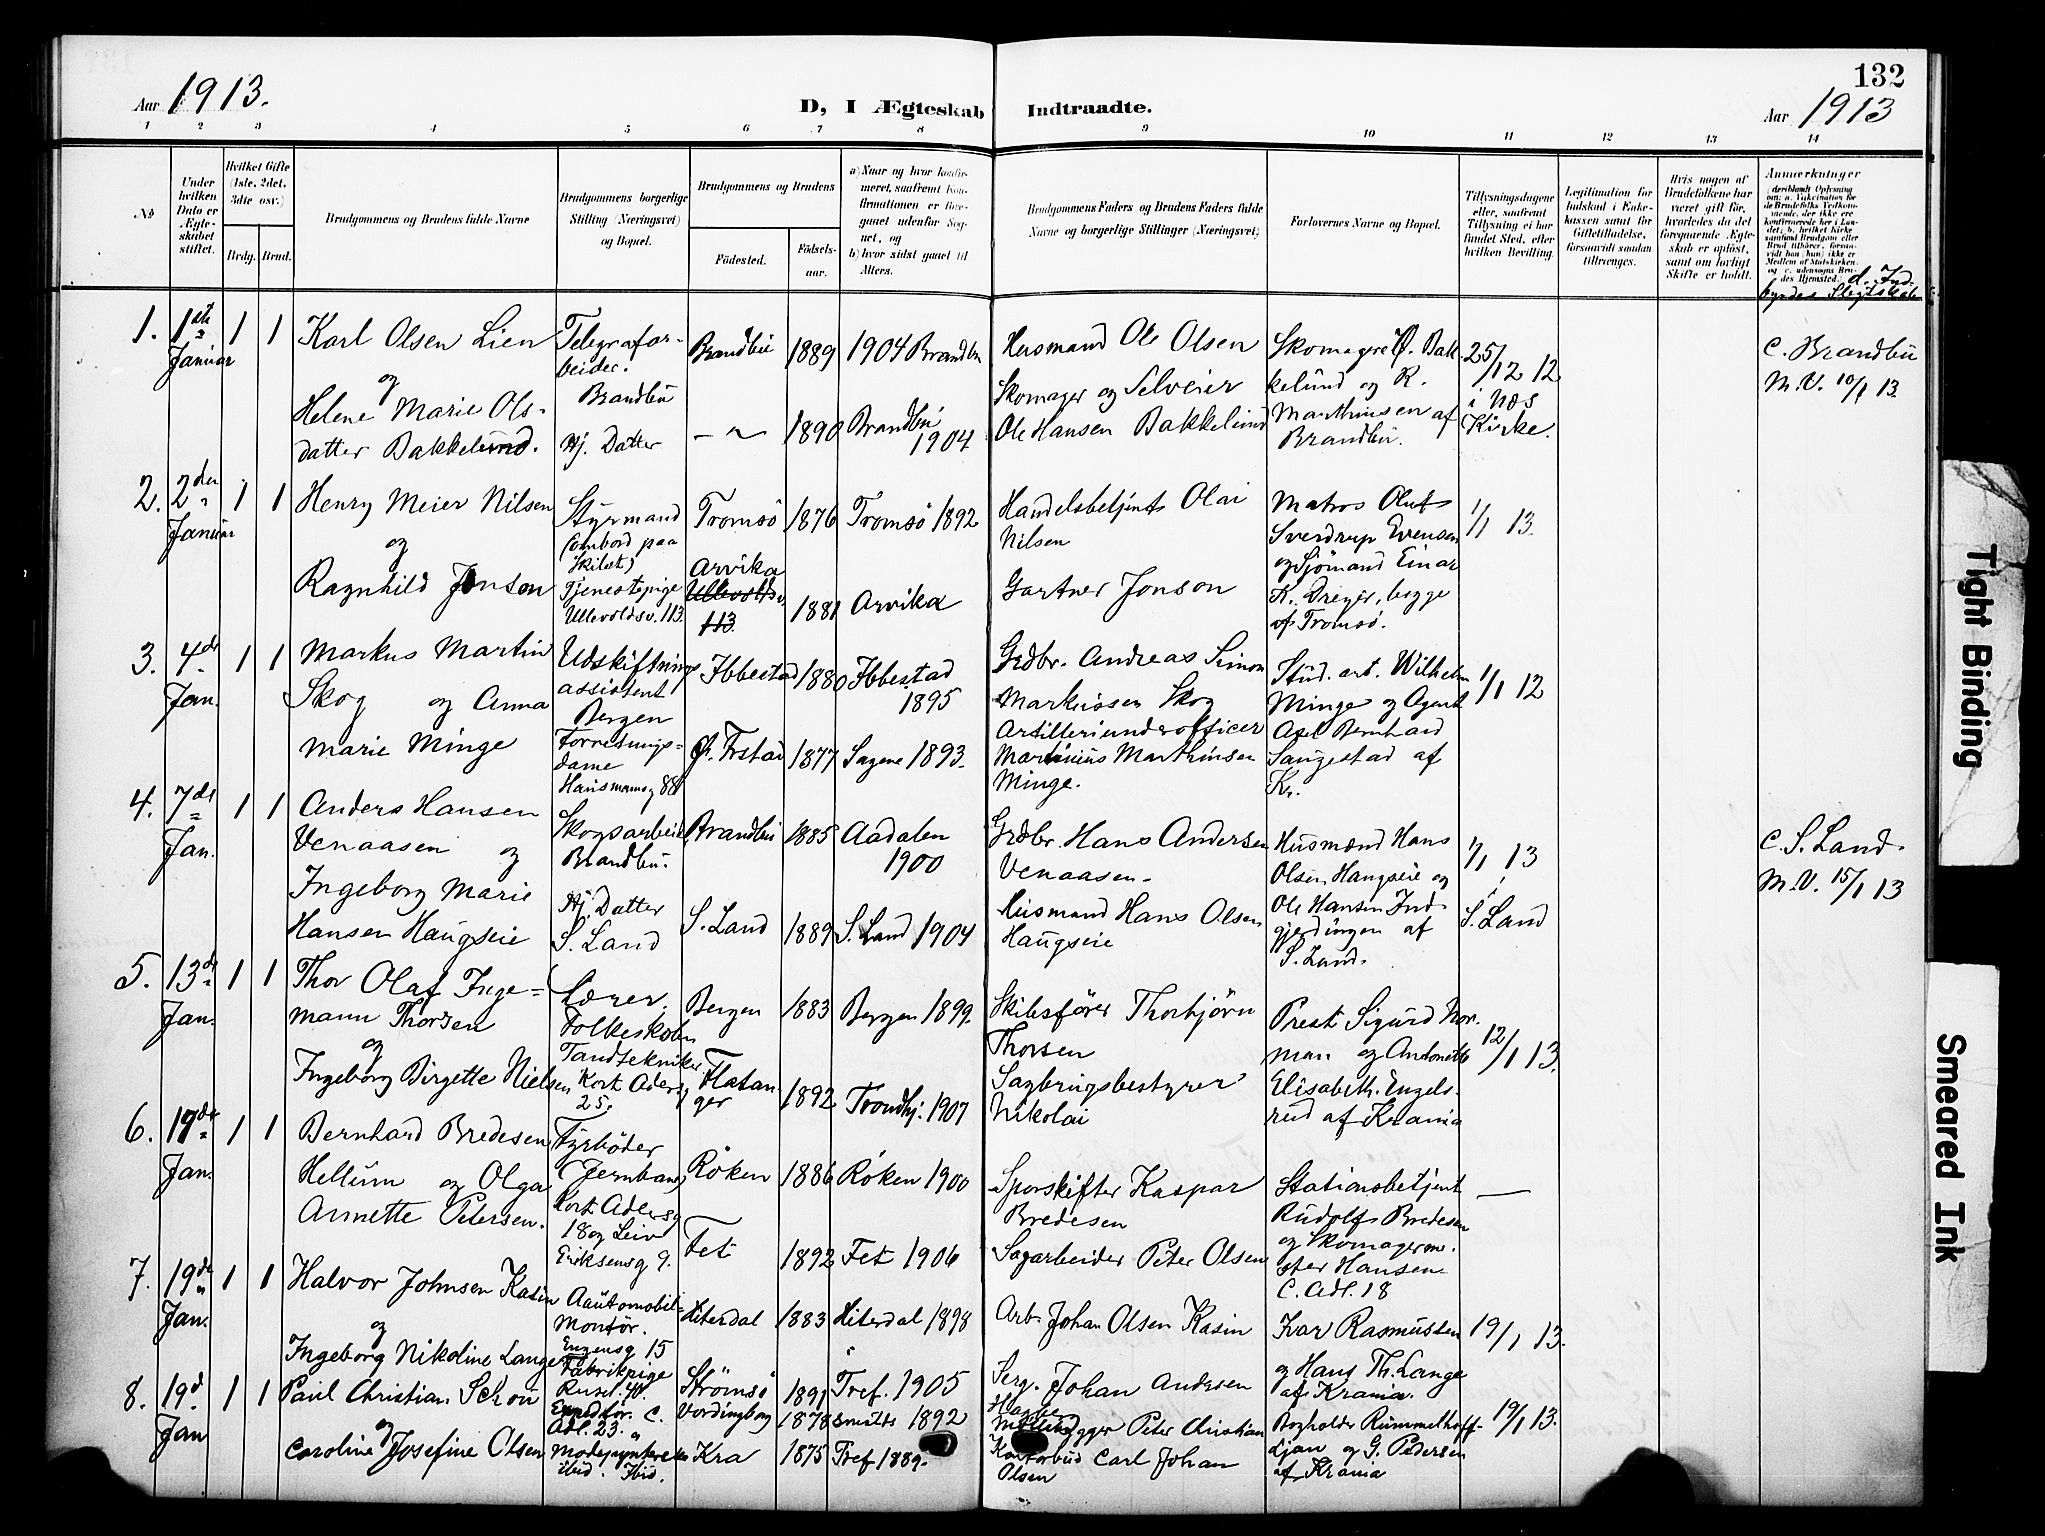 132
Aar 1913.
D, I Ægteskab Indtraadte.
Aar 1913
1 2 3 4 5 6 7 8 9 10 11 12 13 14
No
Under hvilken Dato er Ægteskabet stiftet.
Hvilket Gifte (1ste, 2det, 3die osv.)
Brdg. Brud.
Brudgommens og Brudens fulde Navne
Brudgommens borgerlige Stilling (Næringsvei) og Bopæl.
Brudgommens og Brudens
Födested.
Födsels-aar.
a) Naar og hvor konfirmeret, saafremt Konfirmationen er foregaaet udenfor Sognet, og
b) hvor sidst gaaet til Alters.
Brudgommens Faders og Brudens Faders fulde Navne og borgerlige Stillinger (Næringsvei)
Forlovernes Navne og Bopæl.
Tillysningsdagene eller, saafremt Tillysning ei har fundet Sted, efter hvilken Bevilling.
Legitimation for Indskud i Enkekassen samt for Giftetilladelse, forsaavidt saadan tiltrænges.
Hvis nogen af Brudefolkene har været gift før, hvorledes da det foregaaende Ægteskab er oplöst, samt om lovligt Skifte er holdt.
Anmærkninger
1. 1ste Januar 1 1
Karl Olsen Lien
og
Helene Marie Ols-
datter Bakkelund.
Telegrafar-
beider.
Brandbu
Hj. Datter
Brandbu 1889 1904 Brandbu
— " — 1890 Brandbu 1904
Husmand Ole Olsen
Skomager og Selveier
Ole Hansen Bakkelund
Skomagere Ø. Bak-
kelund og K.
Marthinsen af
Brandbu.
25/12 12
i Nes
Kirke.
C. Brandbu
M.V. 10/1 13.
2. 2den Januar 1 1
Henry Meier Nilsen
og
Ragnhild Jonson
Styrmand
(ombord paa
Skibet)
Tjenestepige
Ullevoldsv. 113.
Tromsö 1876 Tromsö 1892
Arvika
Ullevoldsv.
113.
1881 Arvika
Handelsbetjent Olai
Nilsen
Gartner Jonson
Matros Oluf
Sverdrup Evensen
og Sjömand Einar
K. Dreyer, begge
af Tromsö.
1/1 13.
3. 4de Jan. 1 1
Markus Martin
Skog og Anna
Marie Minge
Udskiftnings
assistent
Bergen
Forretnings-
dame
Hausmannsg 88
Ibbestad 1880 Ibbestad
1895
Ø. Frstad 1877 Sagene 1893.
Grdbr. Andreas Simon
Markussen Skog
Artilleriunderofficer
Martinius Marthinsen
Minge.
Stud. art. Wilhelm
Minge og Agent
Axel Bernhard
Saugestad af
Kr.
1/1 12
4. 7de Jan. 1 1
Anders Hansen
Venaasen og
Ingeborg Marie
Hansen Haugseie
Skogsarbeid.
Brandbu.
Hj. Datter
S. Land
Brandbu 1885 Aadalen
1900
S. Land 1889 S. Land 1904
Grdbr. Hans Andersen
Venaasen.
Husmand Hans Olsen
Haugseie
Husmand Hans
Olsen Haugseie og
Ole Hansen Ind-
gjerdingen af
S. Land.
1/1 13
i
S. Land
C. S. Land.
M.V. 15/1 13
5. 13de Jan. 1 1
Thor Olaf Inge-
mann Thorsen
og
Ingeborg Birgette Nielsen
Lærer,
Folkeskolen
Tandtekniker
Kort Adersg
25.
Bergen 1883 Bergen 1899.
Flatan-
ger
1892 Trondhj. 1907
Skibsfører Thorbjörn
Thorsen
Sagbrugsbestyrer
Nikolai
Prest Sigurd Nor-
man og Antonette
Elisabeth Engels-
rud af Krania
12/1 13.
6. 17de Jan. 1 1
Bernhard Bredesen
Hellum og Olga
Annette Petersen.
Fyrböder
(Jernbane)
Kort Adlersg
18 og Leiv
Eriksensg 9.
Röken 1886 Röken 1900
Fet 1892 Fet 1906
Sporskifter Kaspar
Bredesen
Sagarbeider Peter Olsen
Stationsbetjent
Rudolf Bredesen
og Skomagerme-
ster Hansen
C. Adl. 18
—
7. 19de Jan. 1 1
Halvor Johnsen Kasin
og
Ingeborg Nikoline Lange
Aautomobil-
montör.
Engensg 15
Fabrikpige
Hiterdal 1883 Hiterdal 1898
Strömsö 1891 Tref. 1905
Arb. Johan Olsen Kasin
Serg. Johan Andersen
Ivar Rasmussen
og Hans Th. Lange
af Krania.
19/1 13.
8. 19d Jan 1 1
Paul Christian Schou
og
Caroline Josefine Olsen
Adl. 23.
Vordingborg 1878 1892
Kra 1875 Tref 1889.
Peter Christian
Kontorbud Carl Johan
Olsen
Bogholder Rummelhoff-
Ljan og G. Pedersen
af Krania
19/1 13.
Tight Binding
Smeared Ink